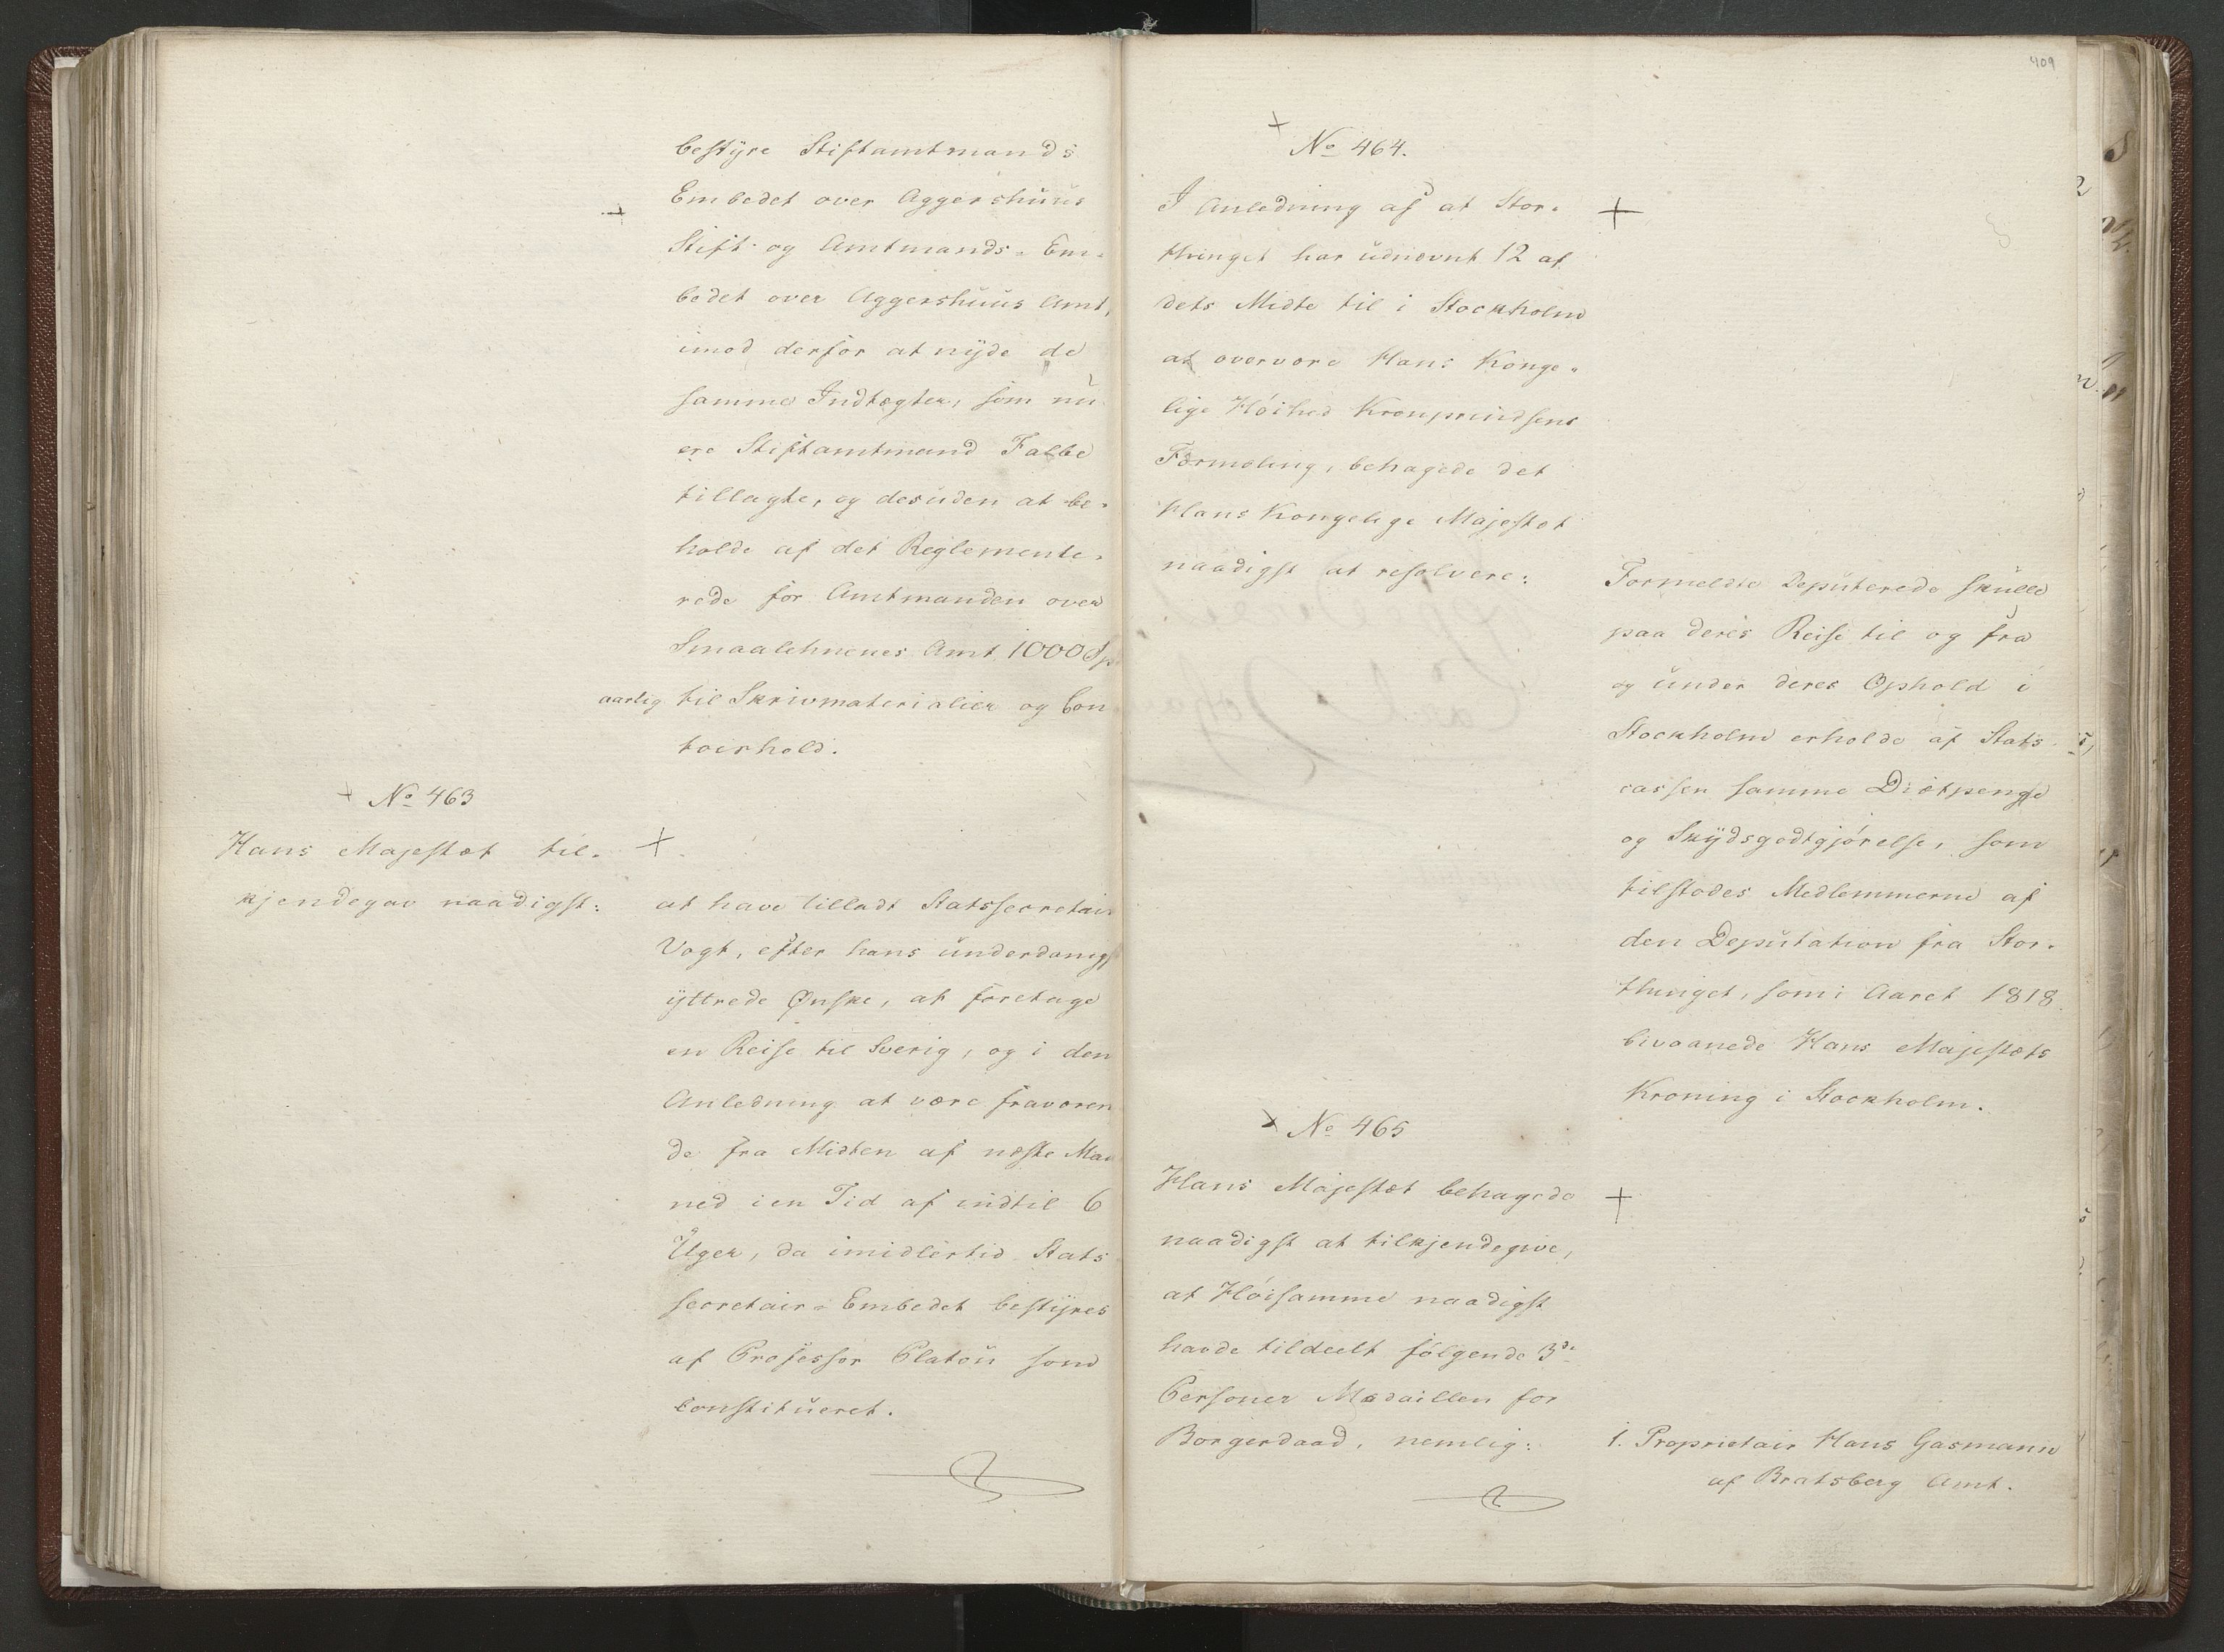 bestÿre Stiftamtmands
Embedet over Aggershuus
Stift og Amtmands-Em-
bedet over Aggershuus Amt,
imod derfor at nÿde de
samme Indtægter, som nu
ere Stiftamtmand Falbe
tillagte, og desuden at be-
holde af det Reglemente-
rede for Amtmanden over
Smaalehnenes Amt 1000 Sp
aarlig til Skrivmaterialier og Con
toirhold.
+ No 463
Hans Majestæt til-
kjendegav naadigst:
at have tilladt Statssecretair
Vogt, efter hans underdanigst
ÿttrede Ønske, at foretage
en Reise til Sverig, og i den
Anledning at være fraværen
de fra Midten af næste Maa
ned i en Tid af indtil 6
Uger, da imidlertid Stats
secretair-Embedet bestÿres
af Professor Platou som
constitueret.
409
+ No 464.
I Anledning af at Stor-
thinget har udnævnt 12 af
dets Midte til i Stockholm
at overvære Hans Konge-
lige Høihed Kronprindsens
Formæling, behagede det
Hans Kongelige Majestæt
naadigst at resolvere:
Formeldte Deputerede skulle
paa deres Reise til og fra
og under deres Ophold i
Stockholm erholde af Stats-
cassen samme Diætpenge
og Skÿdsgodtgjørelse, som
tilstodes Medlemmerne af
den Deputation fra Stor-
thinget, som i Aaret 1818
bivaanede Hans Majestæts
Kroning i Stockholm.
+ No 465
Hans Majestæt behagede
naadigst at tilkjendegive,
at Høisamme naadigst
havde tildeelt følgende 3de
Personer Medaillen for
Borgerdaad, nemlig:
1. Proprietair Hans Gasmann
af Bratsberg Amt.